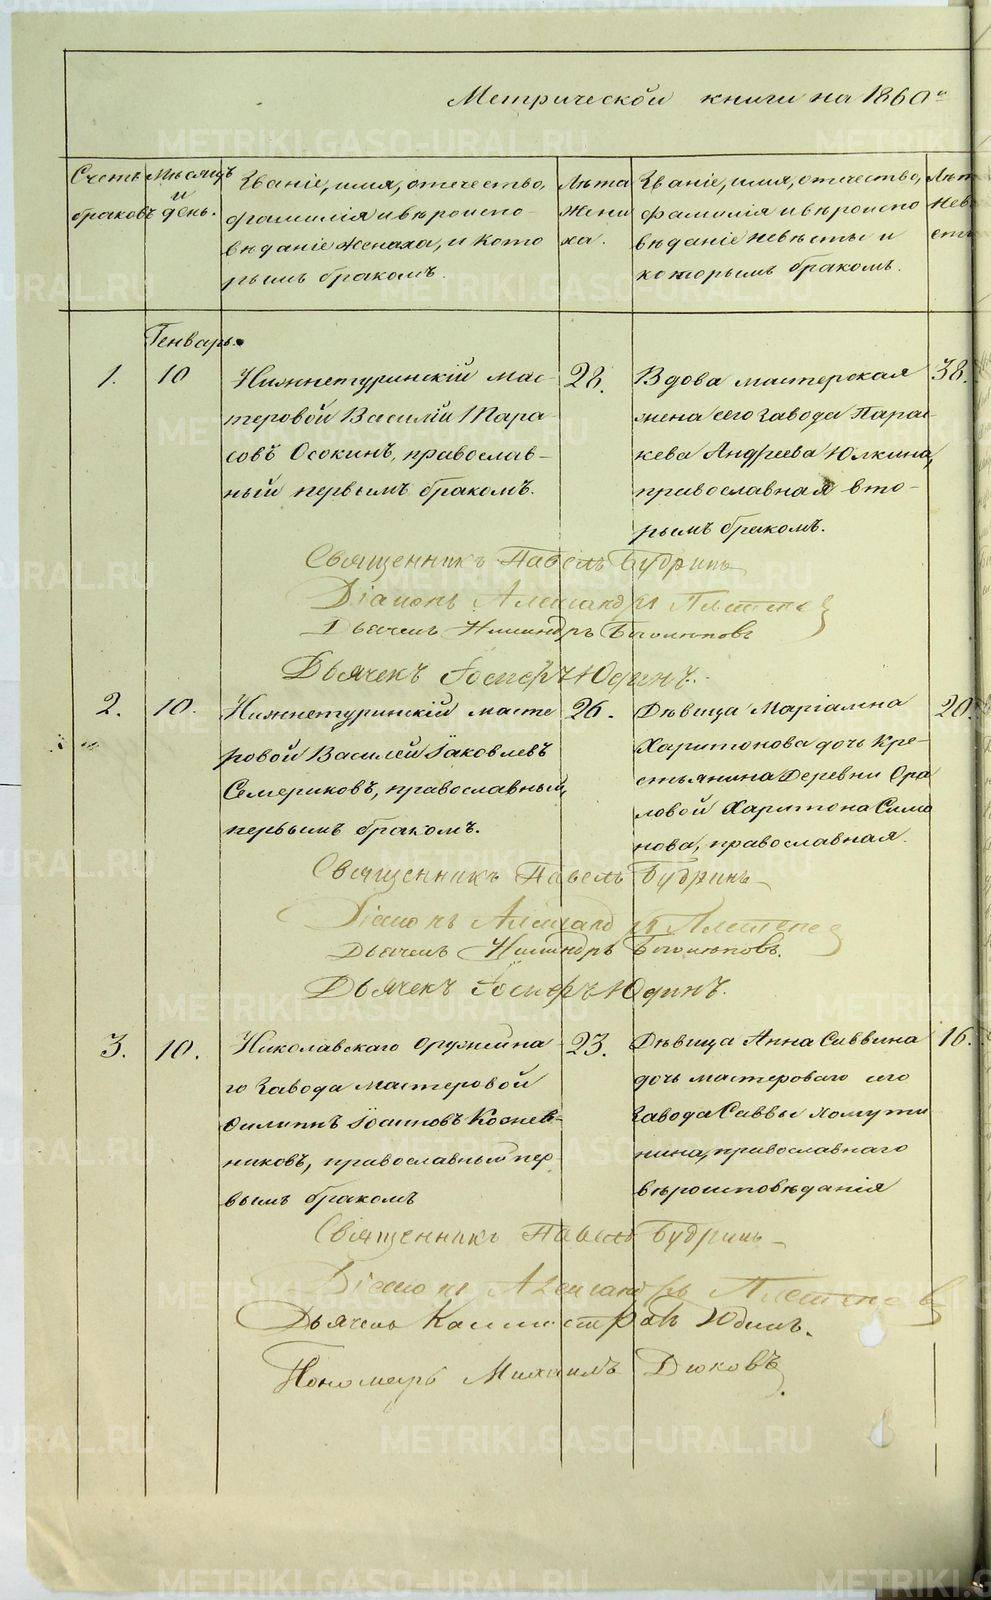 Метрической книги на 1860й
Счетъ браковъ
Мѣсяцъ и день.
Званіе, имя, отечество,
фамилія и вѣроиспо-
вѣданіе жениха, и кото
рымъ бракомъ.
Лѣта
жени
ха.
Званіе, имя, отечество,
фамилія и вѣроиспо
вѣданіе невѣсты и
которымъ бракомъ.
Лѣт
нев
сты
Генварь.
1.
10
Нижнетуринскій мас-
теровой Василій Тара
совъ Осокинъ, православ-
ный первымъ бракомъ.
28.
Вдова мастерская
жена сего завода Парас
кева Андреева Юлкина,
православная вто-
рымъ бракомъ.
38.
Священникъ Павелъ Будринъ
Діаконъ Александръ
Дьячекъ Никандръ
Дьячекъ Іосифъ Юдинъ.
2.
10.
Нижнетуринскій масте
ровой Василей Іаковлевъ
Семериковъ, православный,
первымъ бракомъ.
26.
Дѣвица Маріамна
Харитонова дочь кре-
стьянина деревни Ора
ловой Харитона Симо
нова, православная.
20.
Священникъ Павелъ Будринъ
Діаконъ Александръ
Дьячекъ Никандръ
Дьячекъ Іосифъ Юдинъ.
3.
10.
Николавскаго оружейна
го завода мастеровой
Филиппъ Іоанновъ Кожев-
никовъ, православный пер
вымъ бракомъ
23.
Дѣвица Анна Саввина
дочь мастероваго сего
завода Саввы Хомути
нина, православнаго
вѣроисповѣданія
16.
Священникъ Павелъ Будринъ
Діаконъ Александръ
Дьячекъ Каллистратъ Юдинъ.
Пономарь Михаилъ Дюковъ.
METRIKI.GASO-URAL.RU